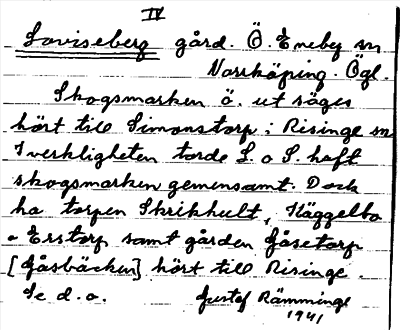 IV
Loviseberg gård. Ö. Eneby sn
Norrköping. Ögl.
Skogsmarken ö. ut säges
hört till Simonstorp i Risinge sn
I verkligheten torde L. o S. haft
skogsmarken gemensamt. Dock
ha torpen Skrikhult, Häggelbo
o Erstorp samt gården Gåsetorp
[Gåsbäcken] hört till Risinge.
Se d.o. Gustaf Rämminge
1941